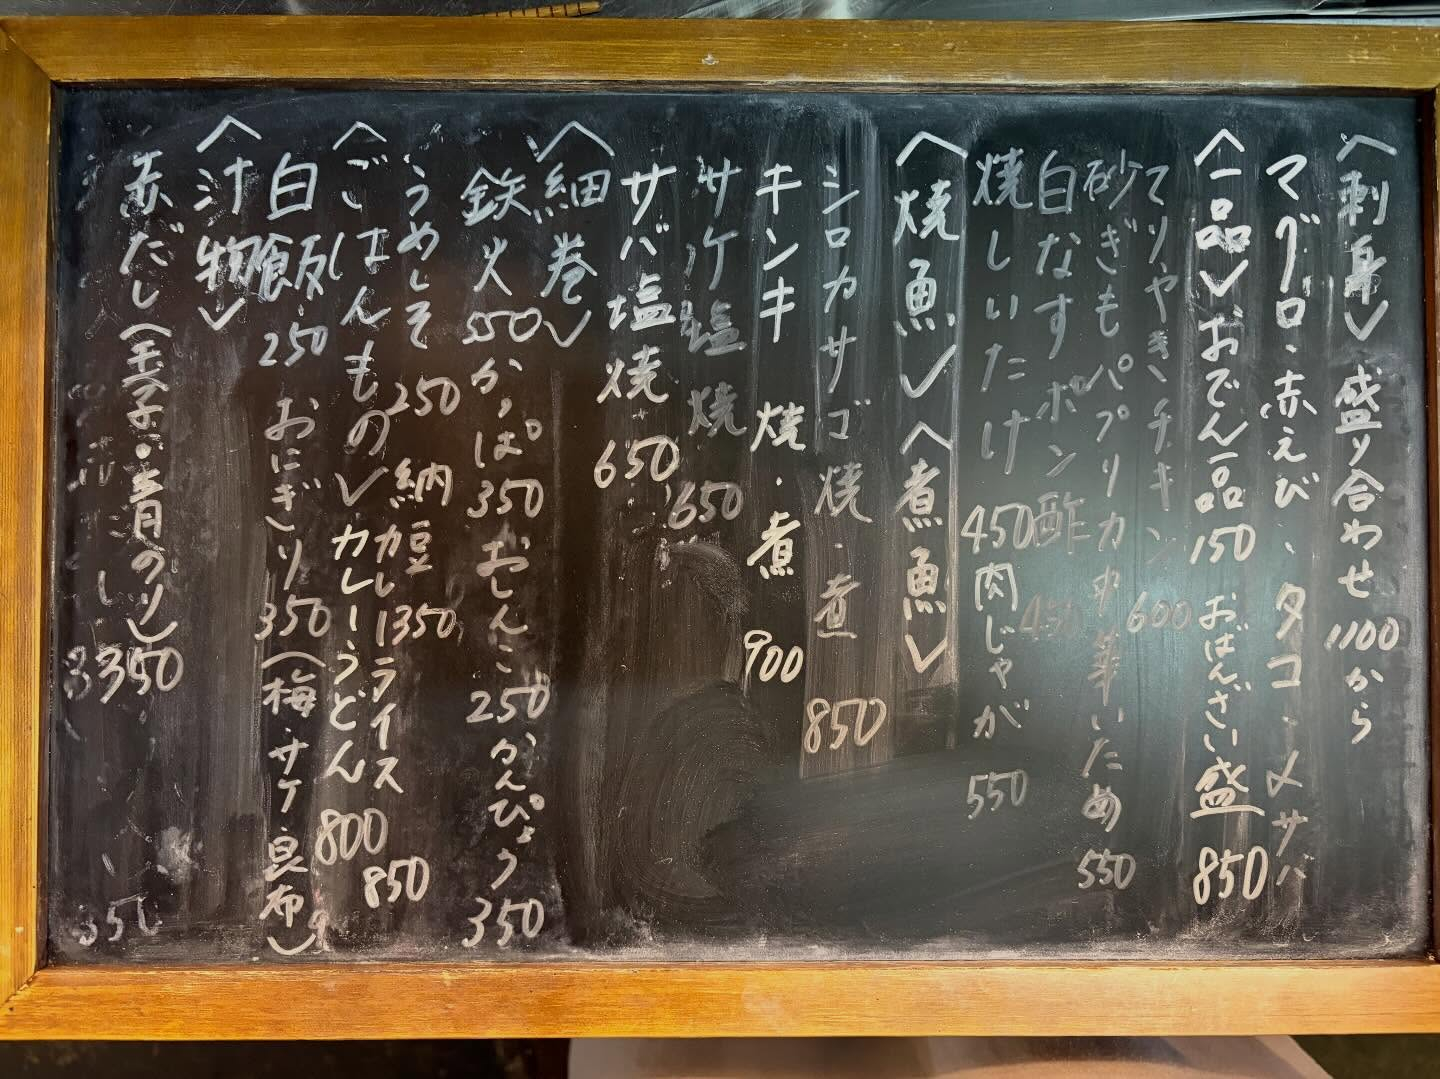 〈刺身〉盛り合わせ 1100から
マグロ・赤えび・タコ・〆サバ
〈一品〉おでん一品 150 おばんざい盛 850
てりやきチキン 600
砂ぎもパプリカ中華いため 550
白なすポン酢 450
焼しいたけ 450 肉じゃが 550
〈焼魚〉〈煮魚〉
シロカサゴ 焼・煮 850
キンキ 焼・煮 900
サケ塩焼 650
サバ塩焼 650
〈細巻〉
鉄火 550 かっぱ 350 おしんこ 250 かんぴょう 350
うめしそ 250 納豆 350
カレーライス 850
〈ごはんもの〉カレーうどん 800
白飯 250 おにぎり 350 (梅・サケ・昆布)
〈汁物〉
赤だし(玉子・青のり) 350